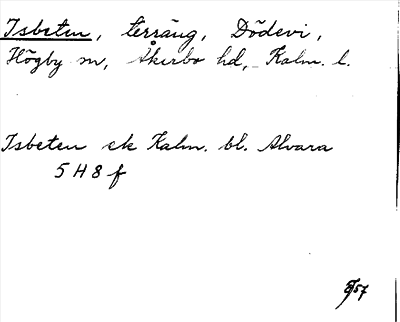 Isbeten, terräng, Dödevi,
Högby sn, Åkerbo hd, Kalm. l.
Isbeten ek Kalm. bl. Alvara
5 H 8 f